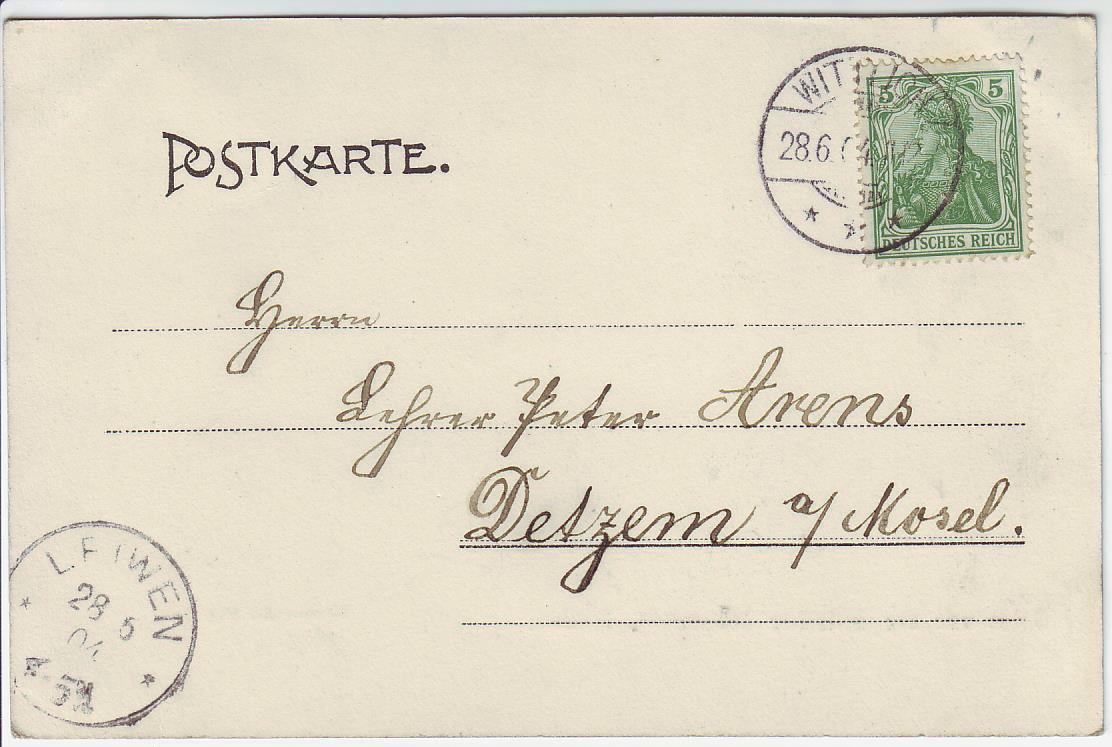 POSTKARTE.
WITTLICH
28.6.04
5 5
DEUTSCHES REICH
Herrn
Lehrer Peter Arens
Detzem a/Mosel.
LEIWEN
28
04